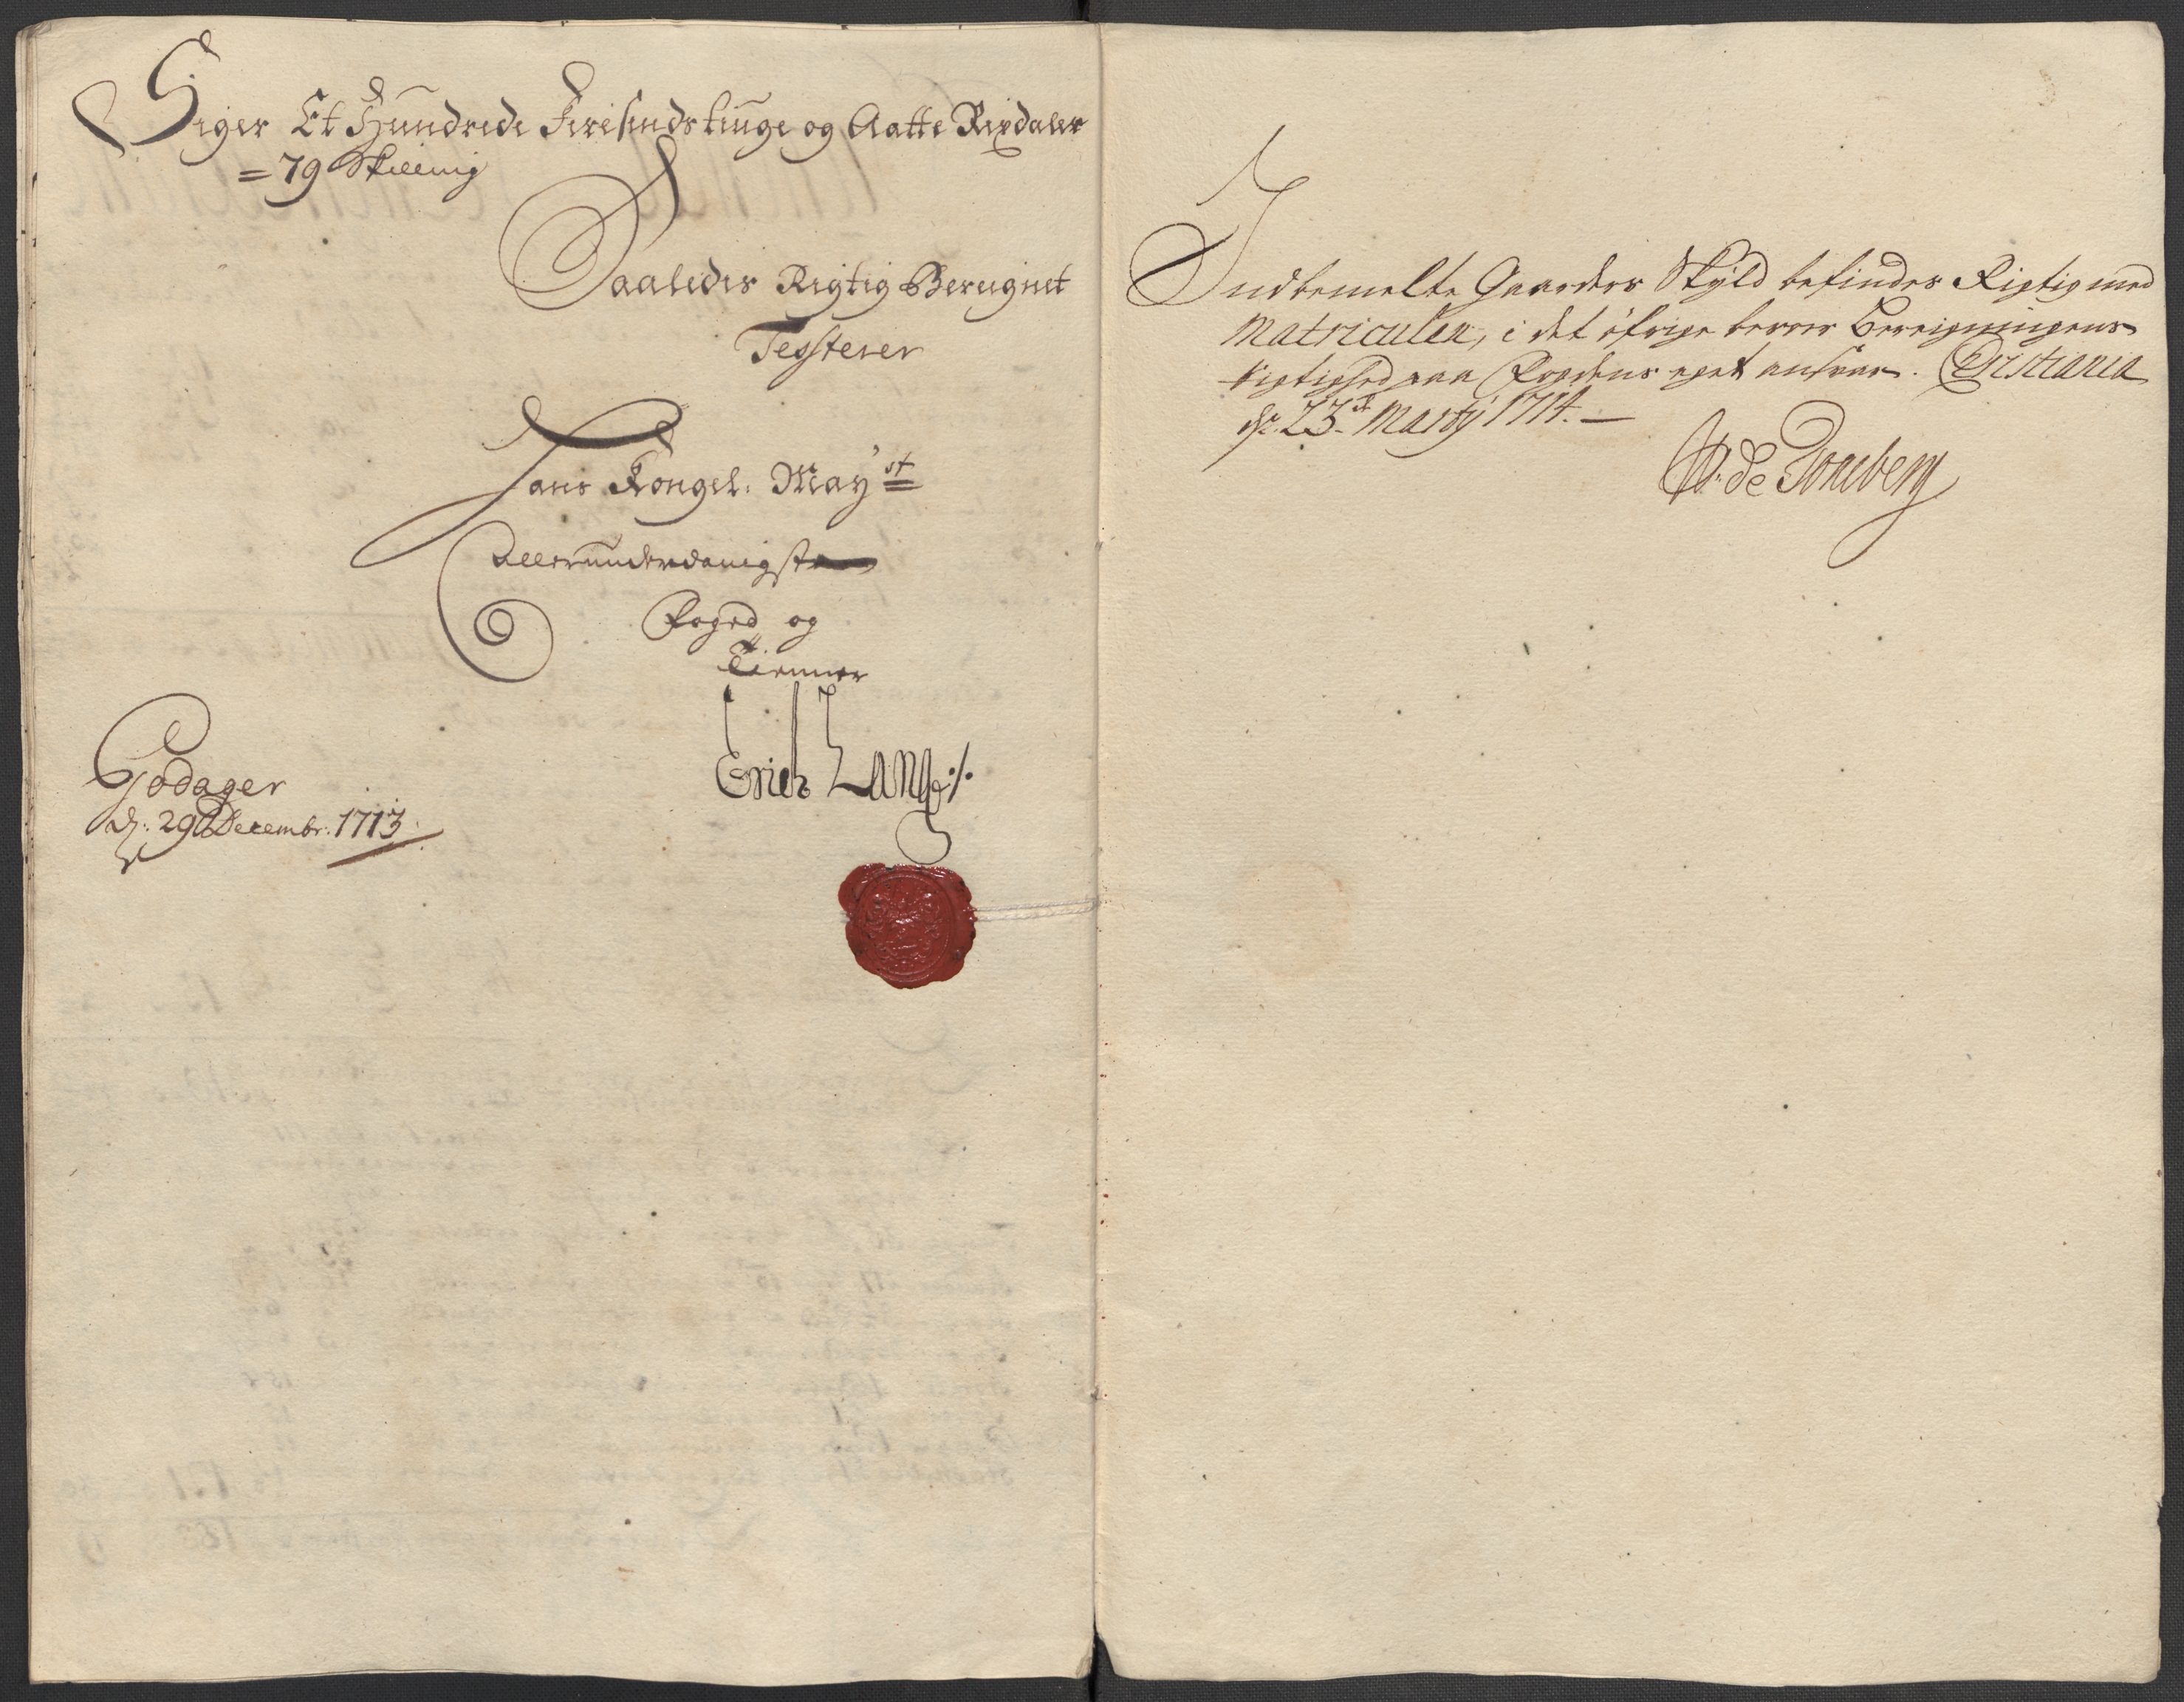 Siger Et Hundrede Firesindstiuge og Aatte Rixdaler
= 79 Skilling
Saaledes Rigtig Bereignet
Testerer
Hans Kongel: May.st
Allerunderdanigste
Foged og
Tienner
Erich Lange ./.
Godager
d: 29 Decembr: 1713
Indbemelte Gaarders Skyld befindes Rigtig med
Matriculen, i det øfrige beroer Bereigningens
Rigtighed paa Fogdens eget ansvar. Christiania
d. 23. Marty 1714. —
de Toneberg